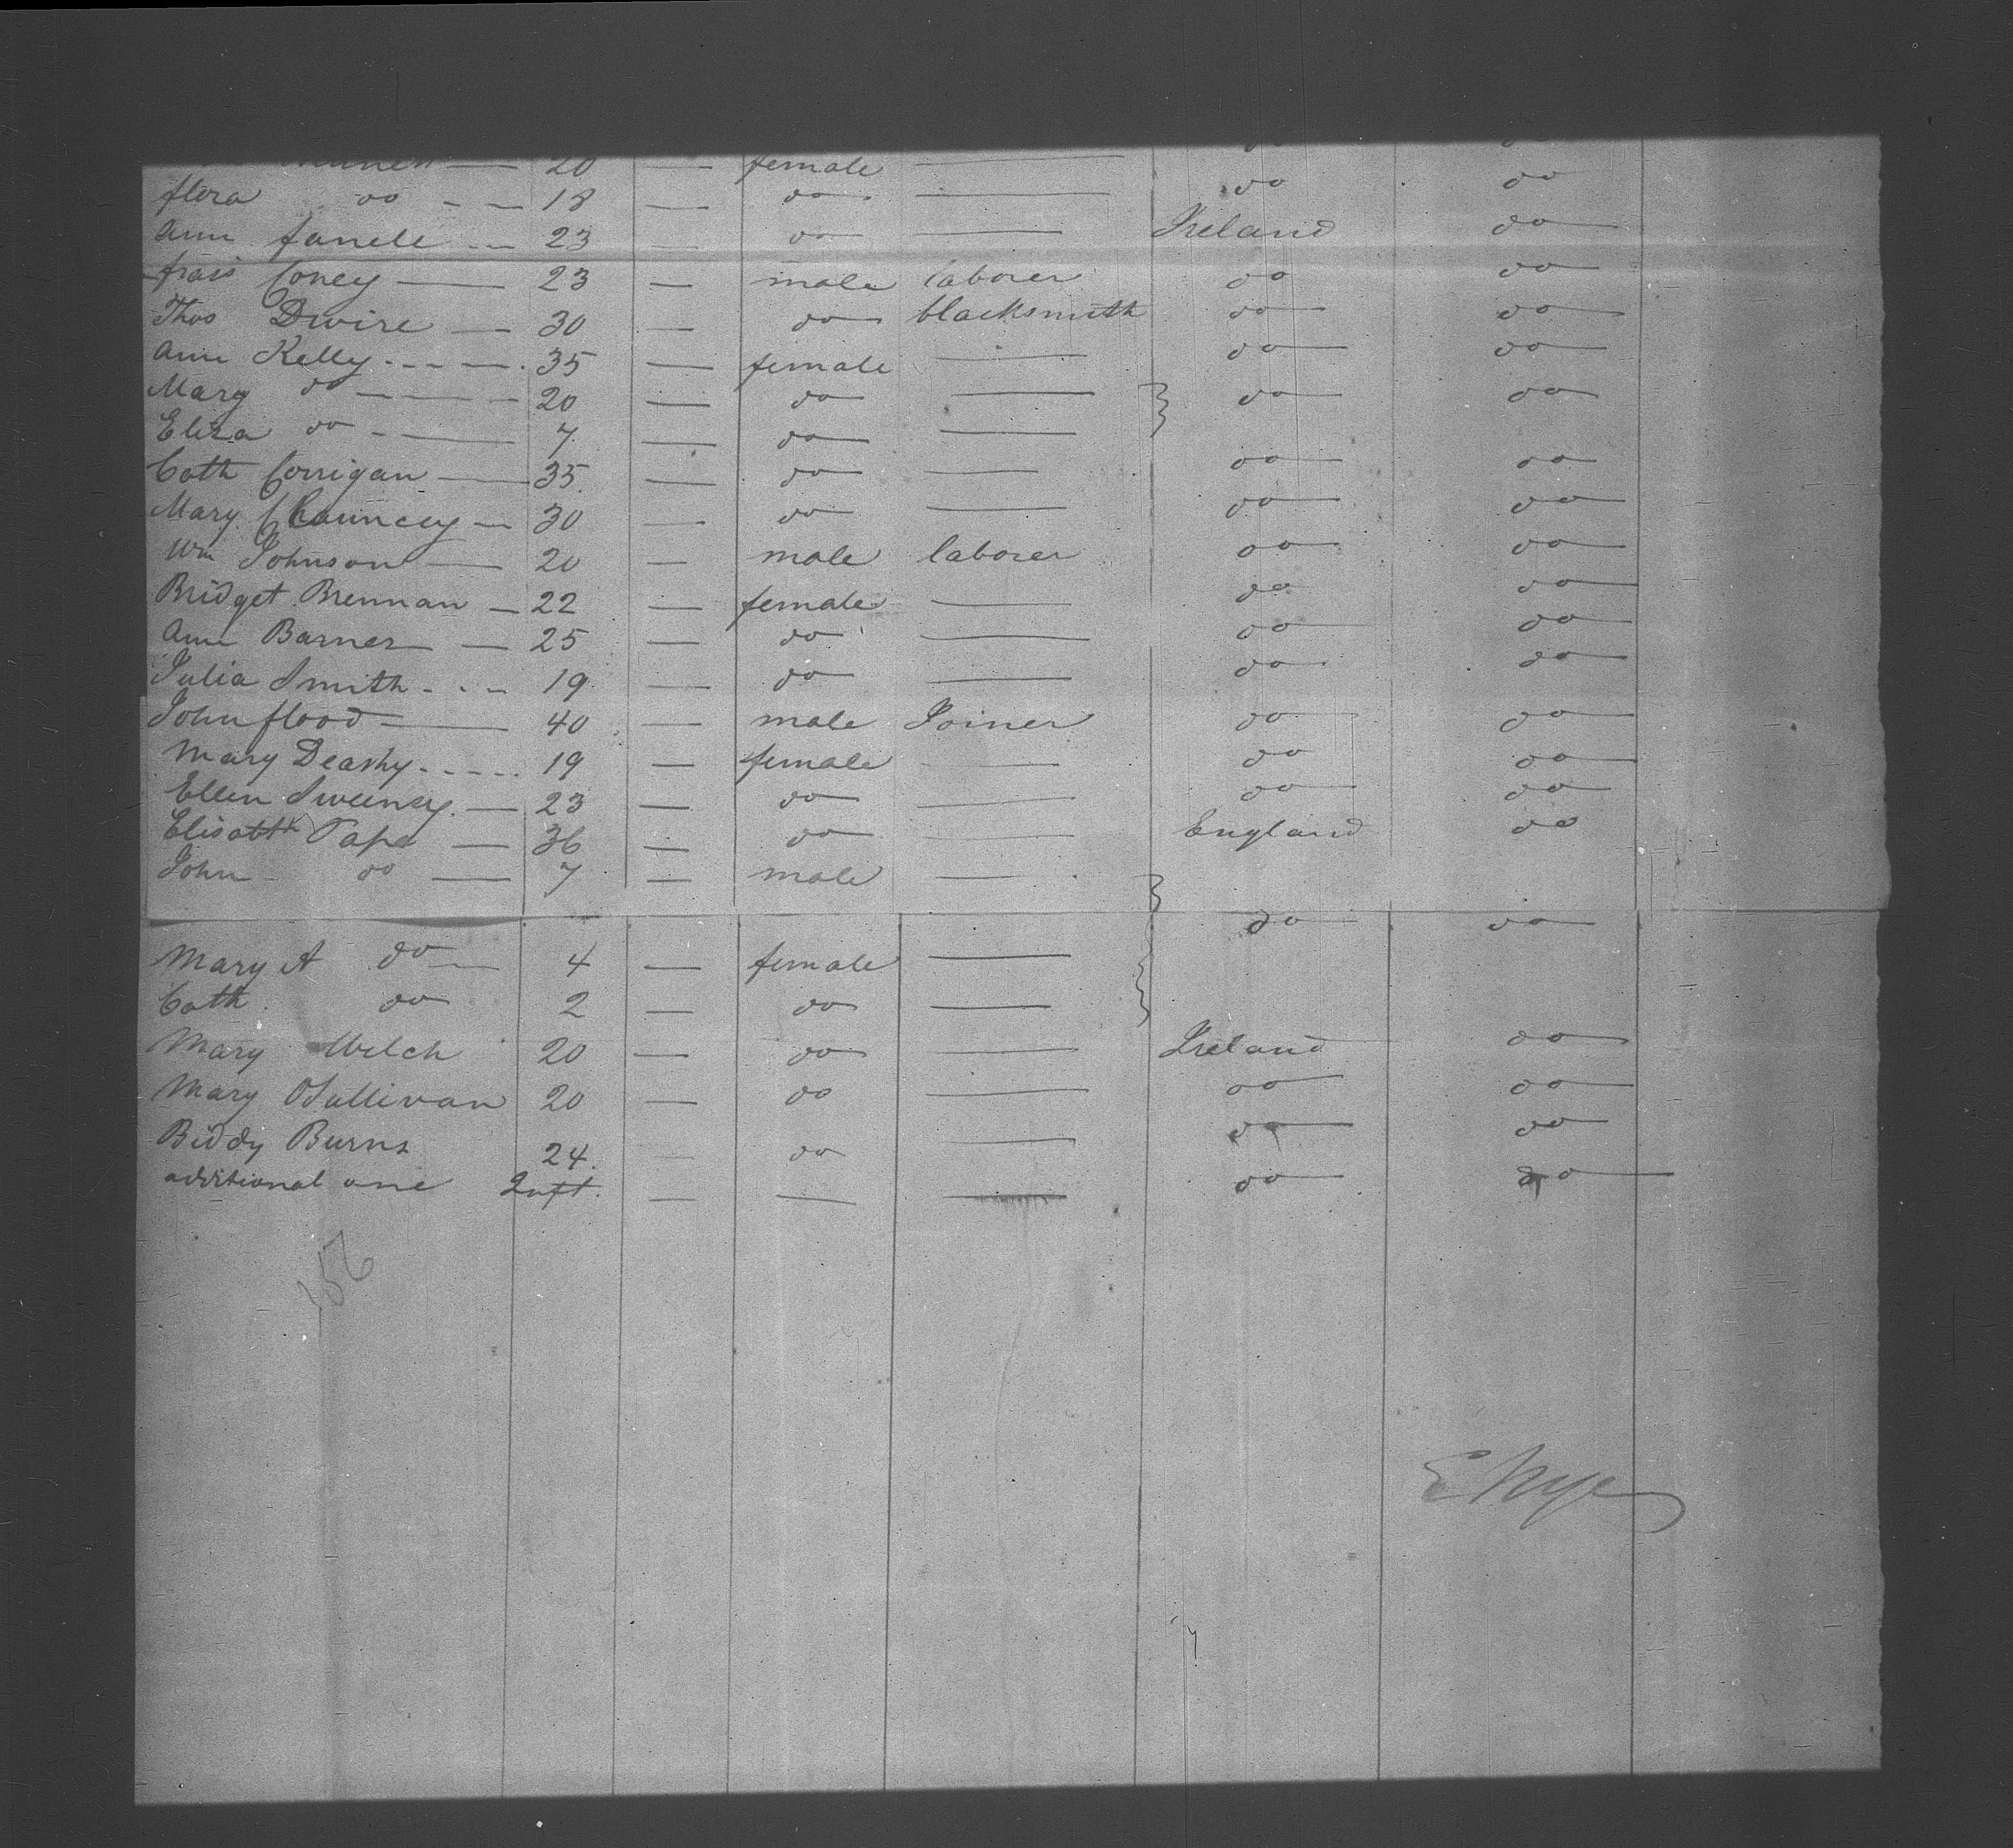 20 — female — do do
flora do - - 18 — do — do do
Ann - - 23 — do — Ireland do
Coney — 23 — male laborer do do
Thos Dwire — 30 — do blacksmith do do
Ann Kelly - - - 35 — female — do do
Mary do — 20 — do — do do
Eliza do - — 7 — do —
Cath Corrigan — 35 — do — do do
Mary Chauncey — 30 — do — do do
Wm Johnson — 20 — male laborer do do
Bridget Brennan — 22 — female — do do
Ann Barnes — 25 — do — do do
Julia Smith - - - 19 — do — do do
John flood — 40 — male Joiner do do
Mary Deashy - - - - 19 — female — do do
Ellen Sweeney — 23 — do — do do
Elisabth Pape — 36 — do — England do
John do — 7 — male —
do do
Mary A do — 4 — female —
Cath do 2 — do —
Mary Welch 20 — do — Ireland do
Mary OSullivan 20 — do — do do
Biddy Burns 24 — do — do do
additional one Inft. — — — do do
156
E Nye